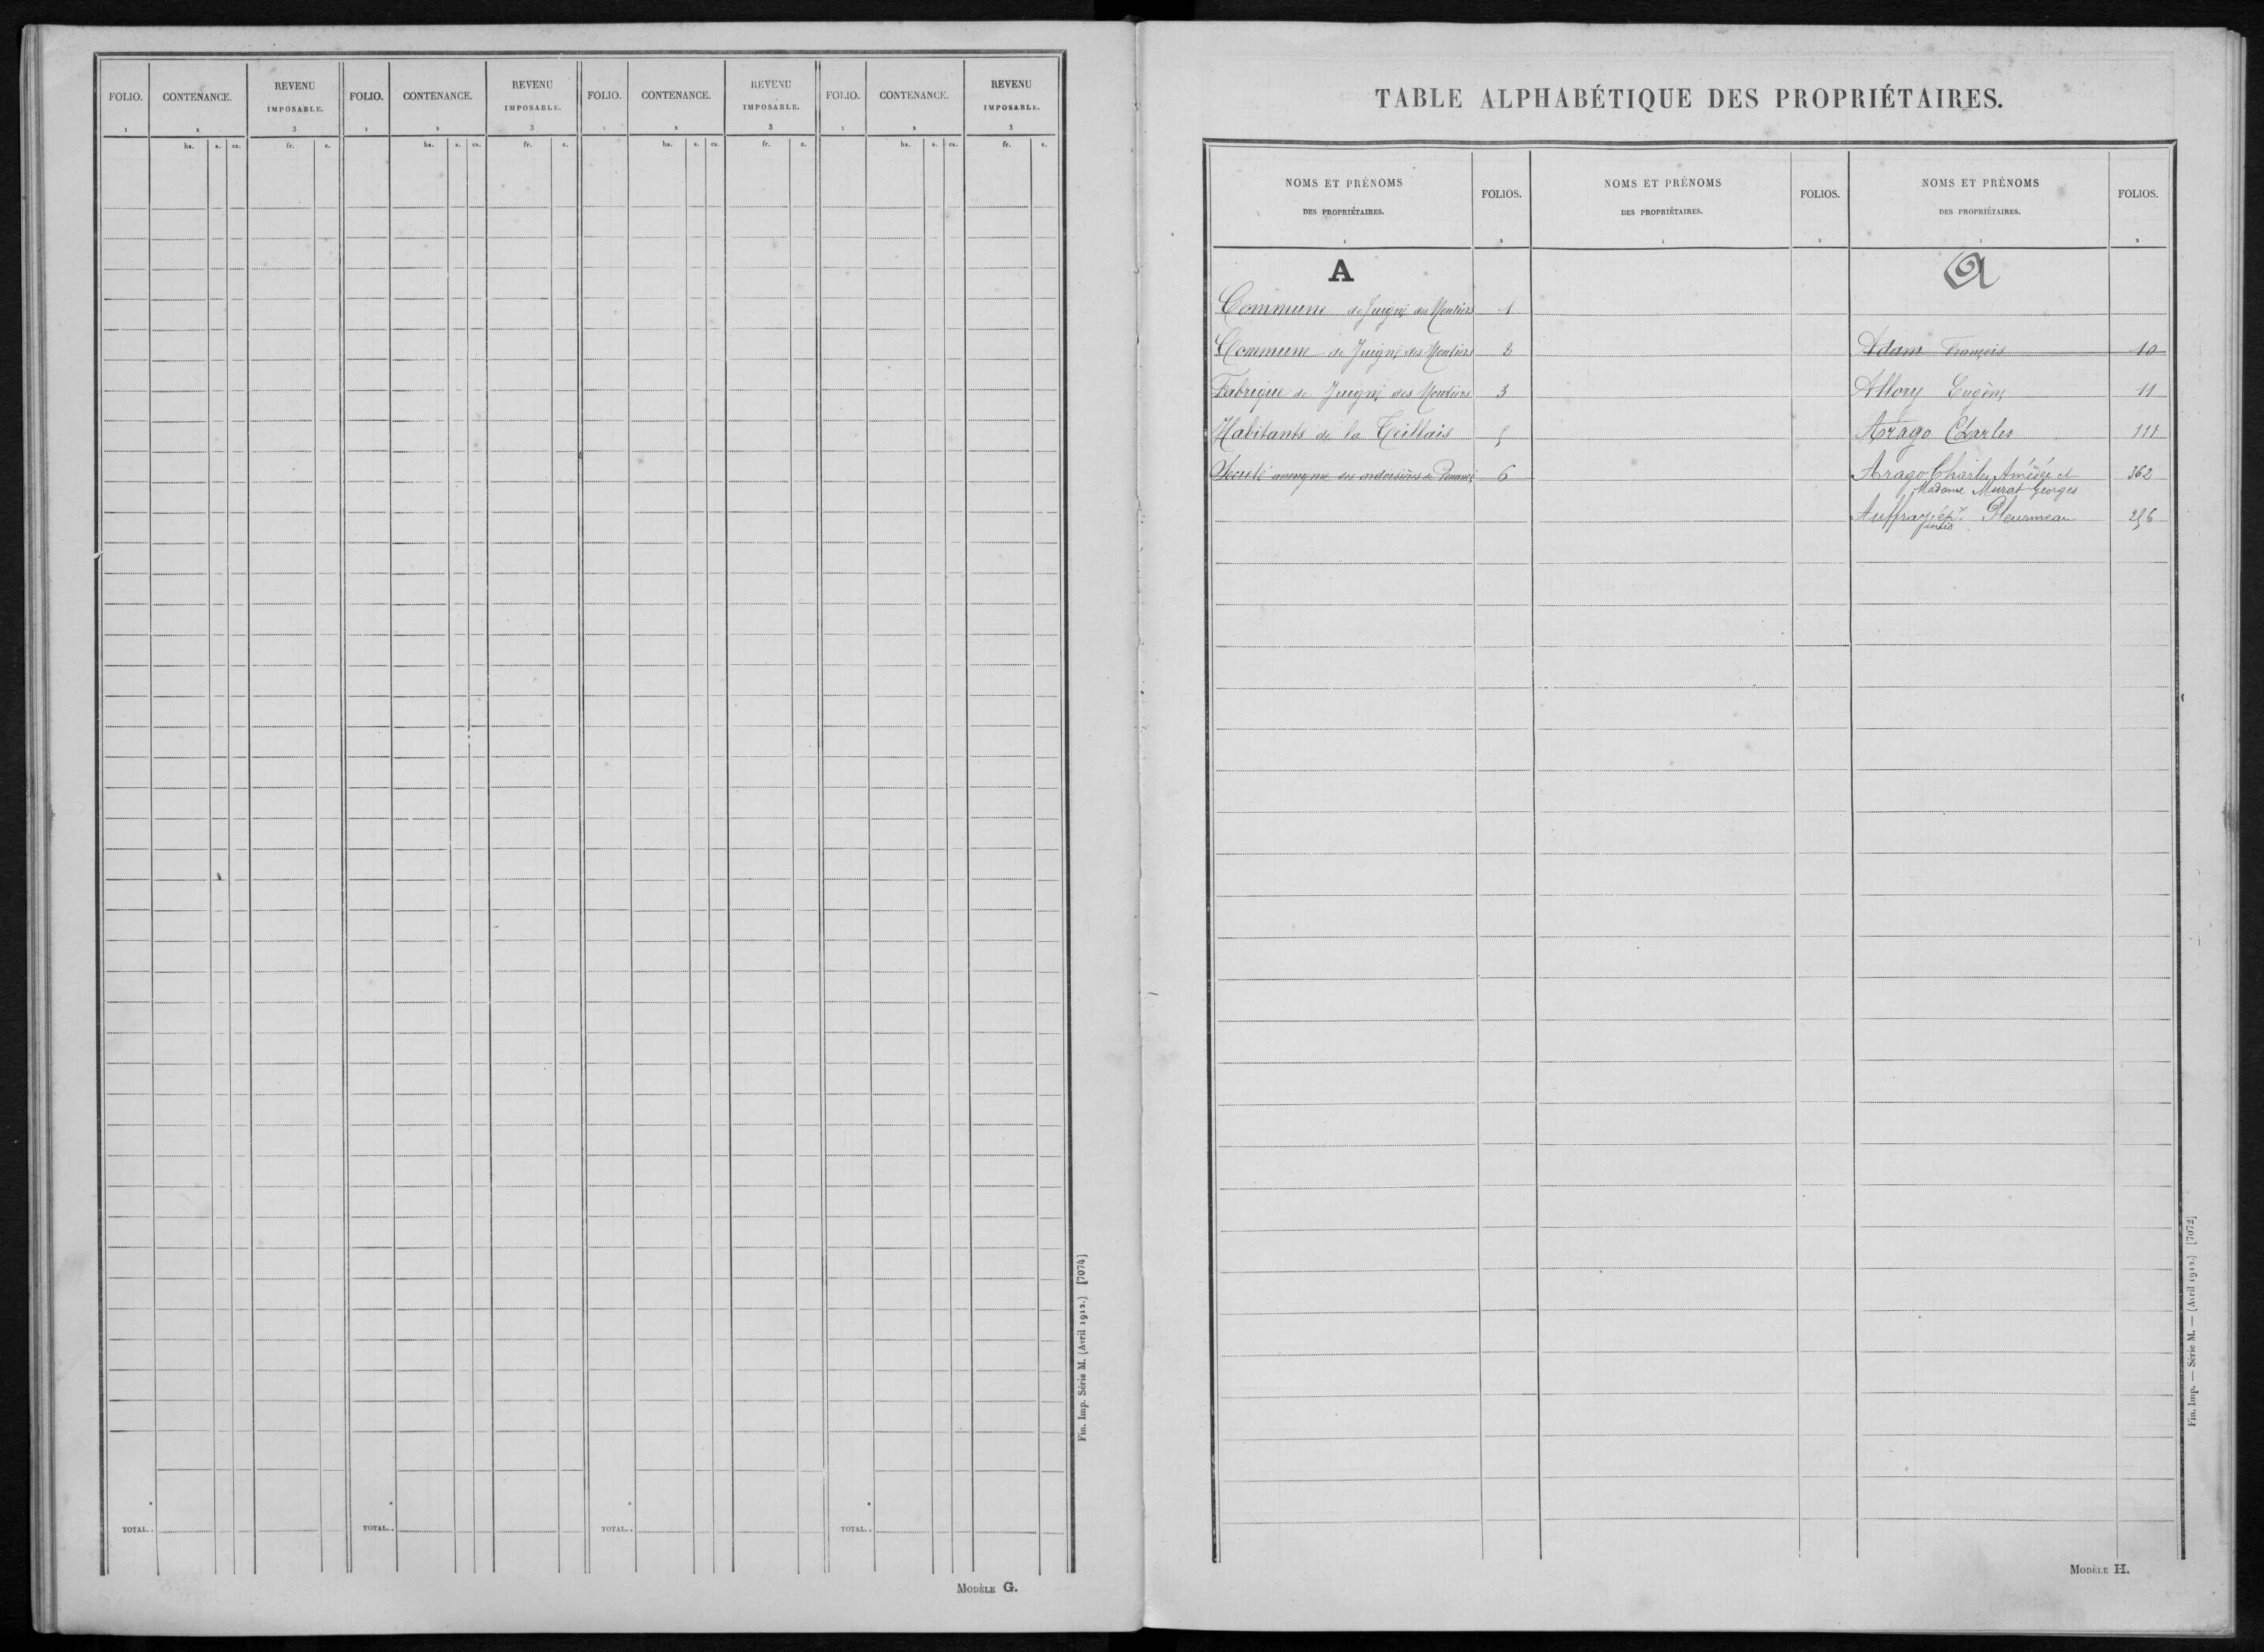 FOLIO. CONTENANCE. REVENU IMPOSABLE. FOLIO. CONTENANCE. REVENU IMPOSABLE. FOLIO. CONTENANCE. REVENU IMPOSABLE. FOLIO. CONTENANCE. REVENU IMPOSABLE.
1 2 3 1 2 3 1 2 3 1 2 3
ha. a. ca. fr. c. ha. a. ca. fr. c. ha. a. ca. fr. c. ha. a. ca. fr. c.
TOTAL.. TOTAL.. TOTAL.. TOTAL..
Fin. Imp. Série M. (Avril 1912.) [7074]
MODÈLE G.
TABLE ALPHABÉTIQUE DES PROPRIÉTAIRES.
NOMS ET PRÉNOMS DES PROPRIÉTAIRES. FOLIOS. NOMS ET PRÉNOMS DES PROPRIÉTAIRES. FOLIOS. NOMS ET PRÉNOMS DES PROPRIÉTAIRES. FOLIOS.
1 2 1 2 1 2
A A
Commune de Juigné des Moutiers 1
Commune de Juigné des Moutiers 2 Adam François 10
Fabrique de Juigné des Moutiers 3 Allory Eugène 11
Habitants de la Teillais 5 Arago Charles 111
Société anonyme des ardoisières de Pouancé 6 Arago Charles Amédée et 362
Madame Murat Georges
Auffray ép. Pleurmeau 256
Fin. Imp. — Série M. — (Avril 1912.) [7072]
MODÈLE H.